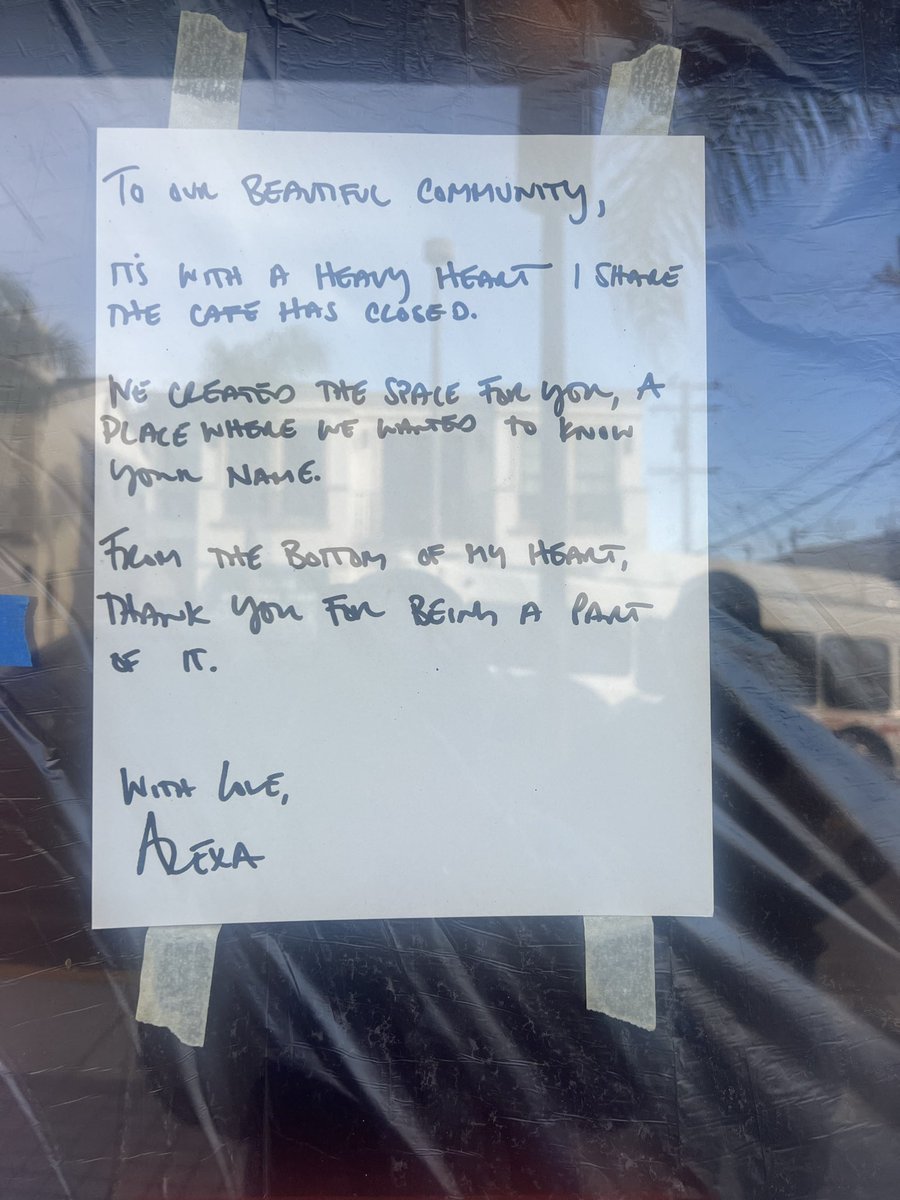 TO OUR BEAUTIFUL COMMUNITY,
IT'S WITH A HEAVY HEART I SHARE
THE CAFE HAS CLOSED.
WE CREATED THE SPACE FOR YOU, A
PLACE WHERE WE WANTED TO KNOW
YOUR NAME.
FROM THE BOTTOM OF MY HEART,
THANK YOU FOR BEING A PART
OF IT.
WITH LOVE,
ALEXA